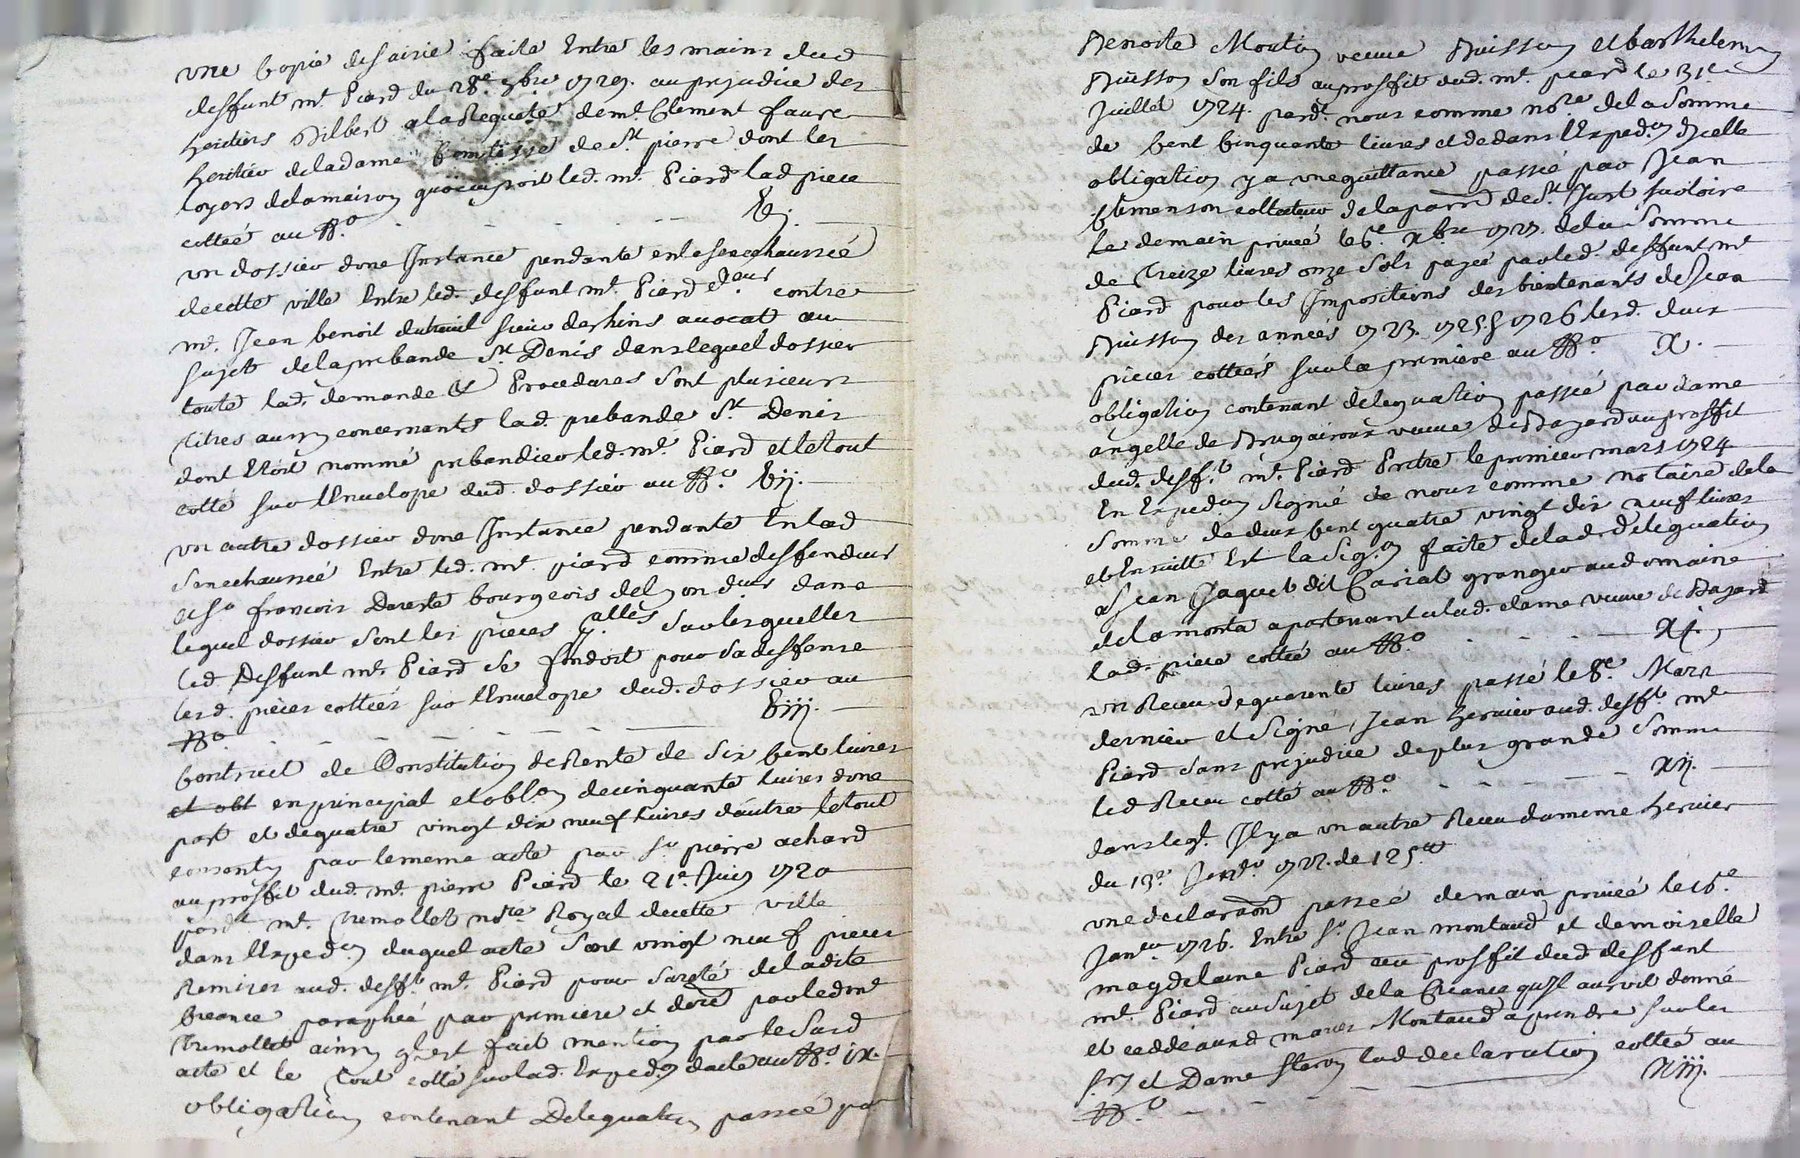 une Copie de saisie faite Entre les mains dud
deffunt me. Piard du 28e. 9bre 1729. au prejudice des
heritiers Gilbert a la Requete de me. Clement faure
heritier de la dame Comtesse de St. pierre dont les
loyers de la maison quoccupoit led. me. Piard lad piece
cottée au No. Vj.
un dossier dune Instance pendante en la senechaussée
de cette ville Entre led. deffunt me. Piard d.eur contre
me. Jean benoit dutreuil sieur deshins avocat au
sujet de la prebande St. Denis dans lequel dossier
toute lad. demande & Procedures sont plusieurs
titres aussy concernants lad. prebande St. Denis
dont Etoit nommé prebandier led. me. Piard et le tout
cotté sur l'Envelope dud. dossier au No. Vij.
un autre dossier dune Instance pendante En lad
Senechaussée Entre led. me. piard comme deffendeur
et sr. francois Dareste bourgeois de Lyon d.eur dans
lequel dossier sont les pieces p.alles sur lesquelles
led. Deffunt me. Piard se fondoit pour sa deffense
lesd. pieces cottées sur l'Envelope dud. dossier au
No. Viij.
Contract de Constitution de Rente de six Cent livres
et obl en principal et oblon. de cinquante livres dune
part et de quatre vingt dix neuf livres d'autre le tout
consenty par le meme acte par sr. pierre achard
au proffit dud. me. pierre Piard le 21e. Juin 1720
pardt. me. Tremollet nore. Royal de cette ville
dans l'Expedon duquel acte sont vingt neuf pieces
Remises aud. defft. me. Piard pour sureté de la dite
Creance paraphée par premiere et dere. par led me.
Tremollet ainsy quest fait mention par le susd
acte et le tout cotté sur lad. Expedon. dacte au No. ix.
obligation contenant Delegation passée par
Benoite Moutin veuve Buisson et barthelemy
Buisson son fils au proffit dud. me. piard le 31e
Juillet 1724. pardt. nous comme nore. de la somme
de Cent Cinquante livres et dedans l'Expedon. Dicelle
obligation y a une quittance passée par Jean
Clemenson collecteur de la parr. de St. Just sur loire
de main privée le 6e. Xbre 1727. de la somme
de Treize livres onze sols payée par led. deffunt me
Piard pour les Impositions des bientenants de Jean
Buisson des années 1723. 1725 & 1726 lesd. deux
pieces cottées sur la premiere au No. X.
obligation contenant delegation passée par dame
angelle de Brugairoux veuve de Bazard au proffit
dud. deff.t me. Piard Pretre le premier mars 1724
En Expedon signé de nous comme notaire de la
somme de deux Cent quatre vingt dix neuf livres
et Ensuitte Est la sig.on faite de lad. delegation
a Jean Jaquet dit Cariat granger au domaine
de la monta apartenant a lad. dame veuve de Bazard
lad. piece cottée au No. XI.
un Receu de quarente livres passé le 8e. Mars
dernier et signé Jean hervier aud. defft. me
Piard sans prejudice de plus grande somme
led Receu cotté au No. XIj.
dans leql. Il y a un autre Receu du meme hervier
du 13e. Janer. 1727. de 125tt
une declaraon passée de main privée le 15e.
Janer 1726. Entre sr. Jean montaud et demoiselle
magdelaine Piard au proffit dud deffunt
me. Piard au sujet de la Creance qu'Il auroit donné
et ceddé aud mariés Montaud a prendre sur les
srs et Dame Staron lad declaration cottée au
No. XIij.